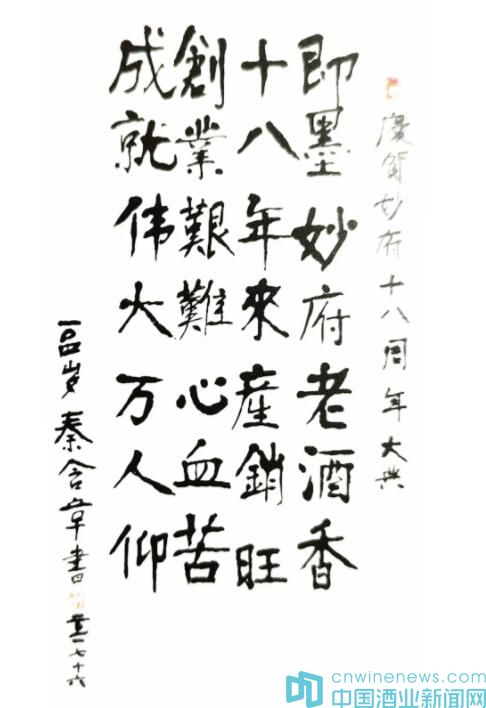 慶賀妙府十八周年大典
即墨妙府老酒香
十八年來産銷旺
創業艱難心血苦
成就伟大万人仰
一〇四岁秦含章書
cnwinenews.com
中国酒业新闻网